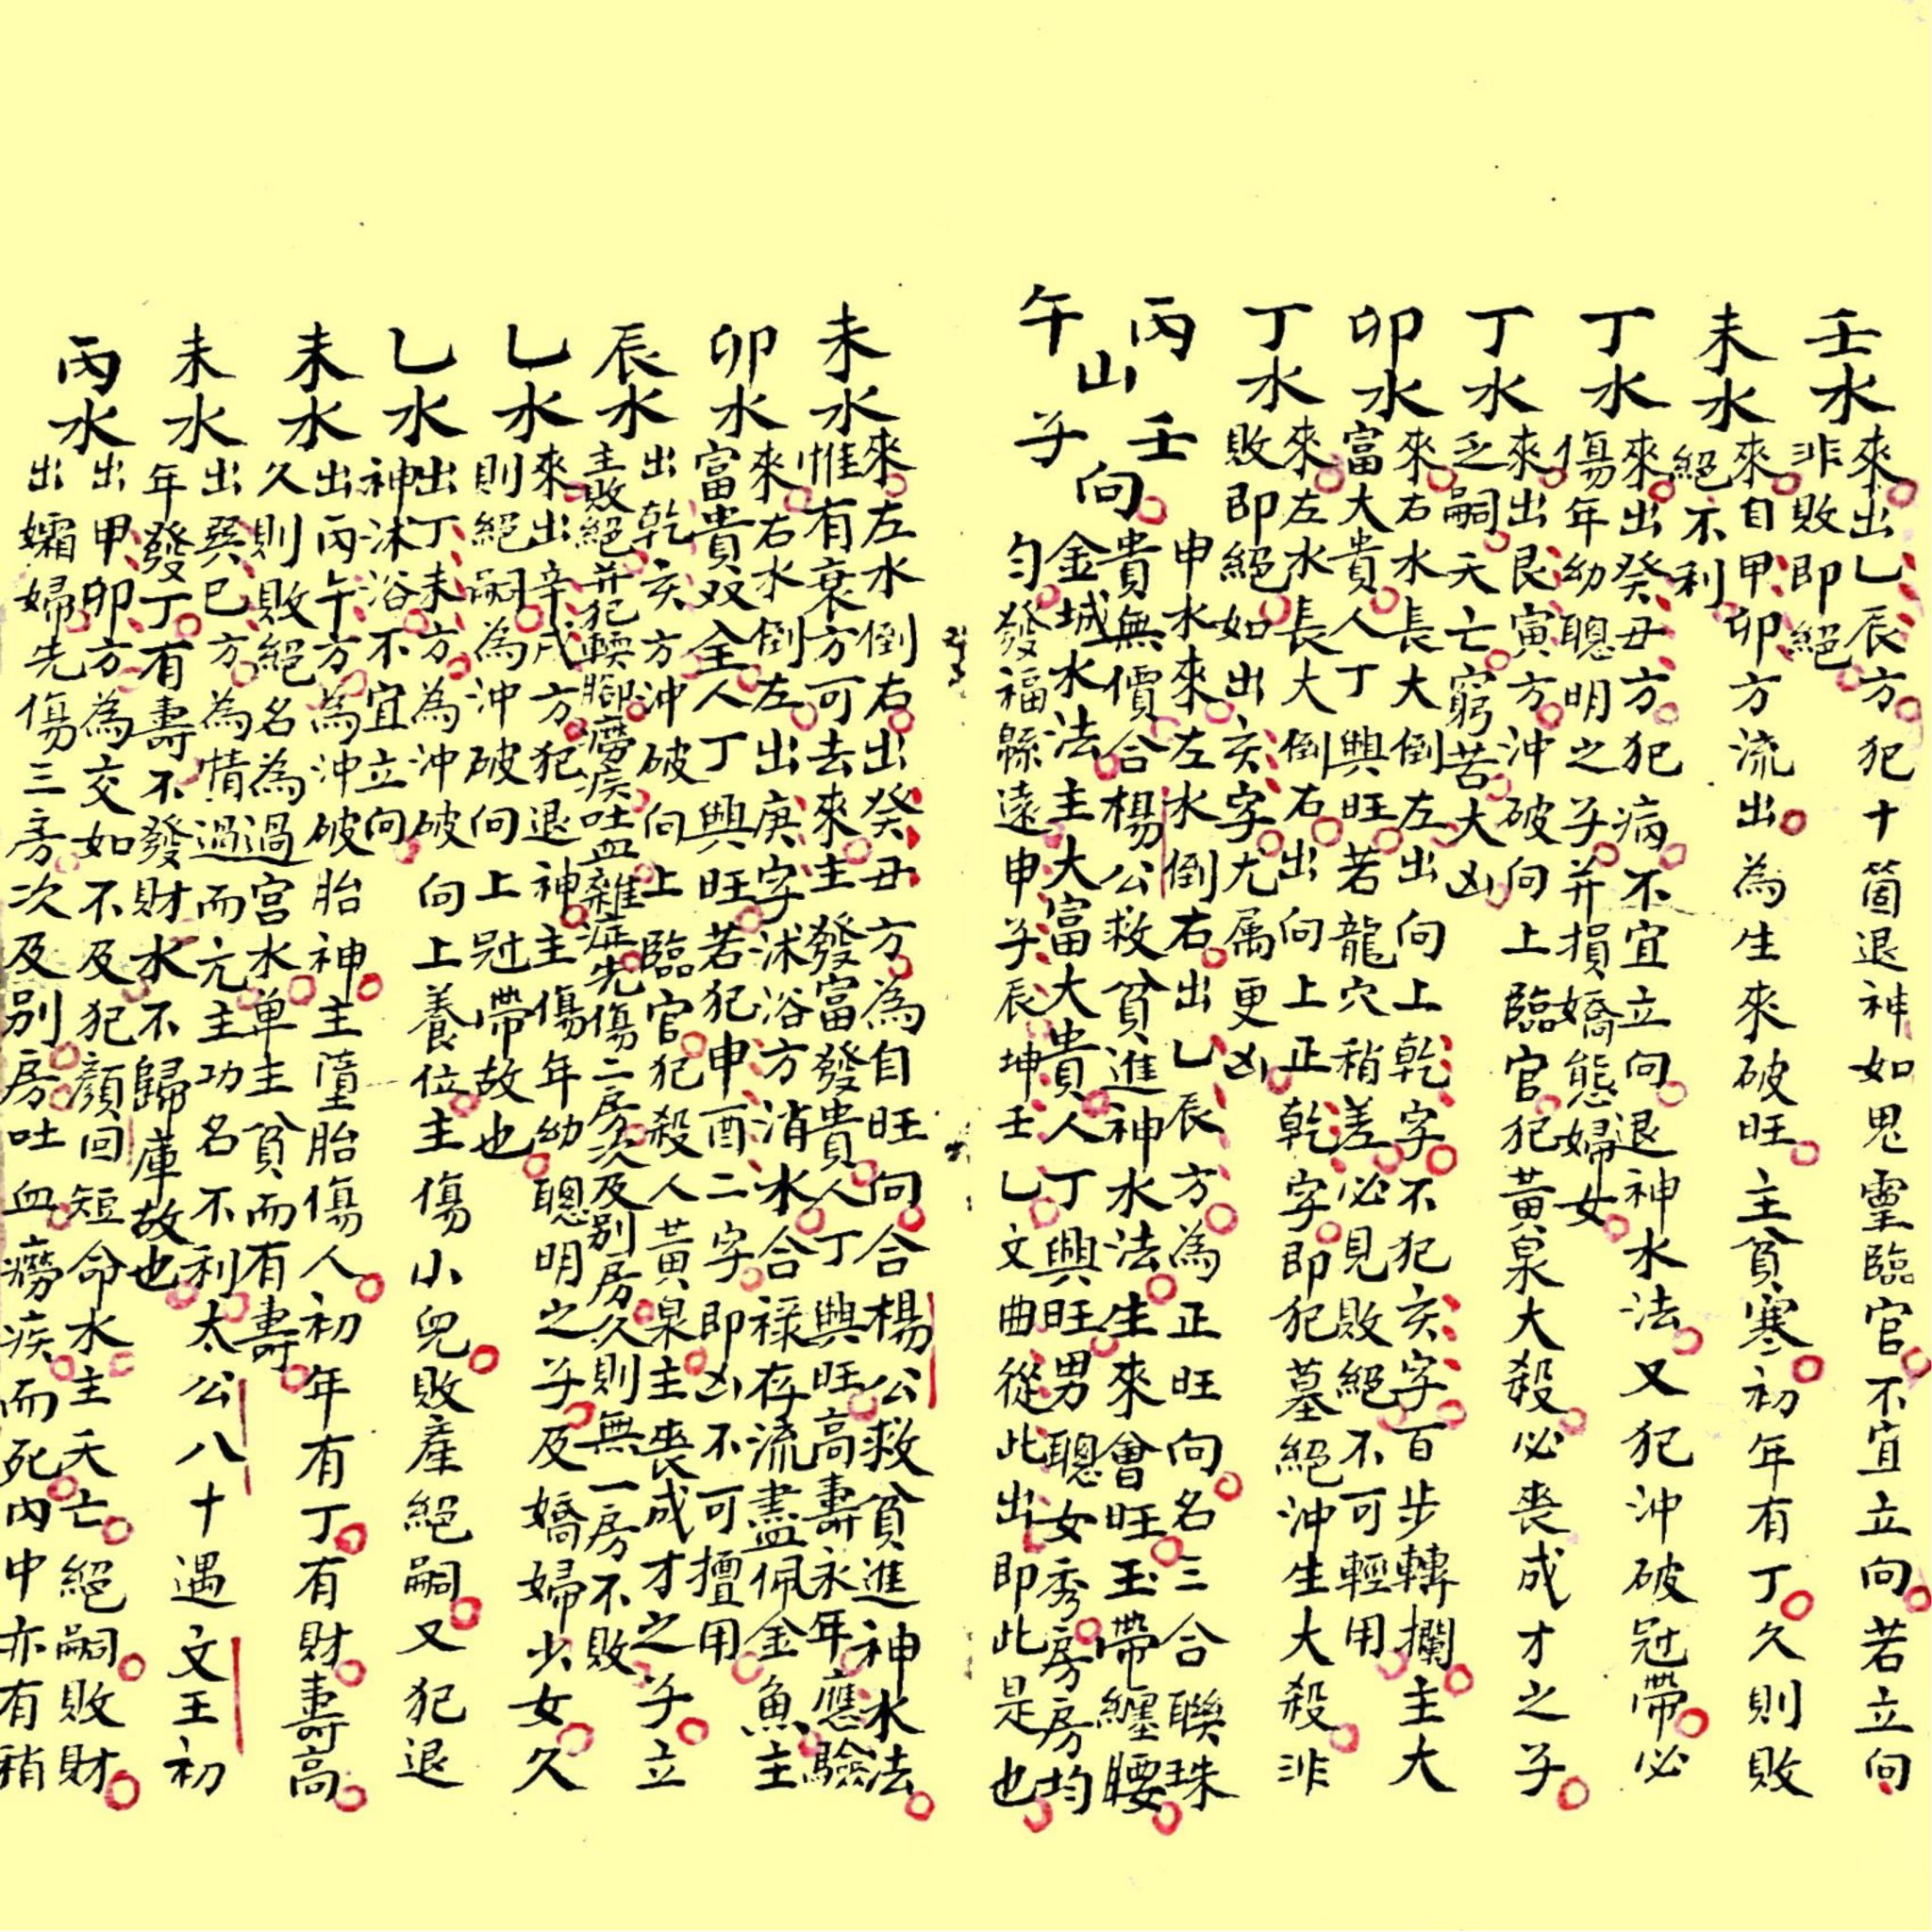 壬水
來出乙辰方犯十箇退神如鬼靈臨官不宜立向若立向
非敗即絕
未水
來自甲卯方流出為生來破旺主貧寒初年有丁久則敗
絕不利
丁水
來出癸丑方犯病不宜立向退神水法又犯沖破冠帶必
傷年幼聰明之子并損嬌態婦女
丁水
來出艮寅方沖破向上臨官犯黃泉大殺必喪成才之子
乏嗣夭亡窮苦大凶
卯水
來右水長大倒左出向上乾字不犯亥字百步轉攔主大
富大貴人丁興旺若龍穴稍差必見敗絕不可輕用
丁水
來左水長大倒右出向上正乾字即犯墓絕沖生大殺非
敗即絕如出亥字尤属更凶
丙午山壬子向
申水來左水倒右出乙辰方為正旺向名三合聯珠
貴無價合楊公救貧進神水法生來會旺玉帶纏腰
金城水法主大富大貴人丁興旺男聰女秀房房均
勻發福緜遠申子辰坤壬乙文曲從此出即此是也
未水
來左水倒右出癸丑方為自旺向合楊公救貧進神水法
惟有衰方可去來主發富發貴人丁興旺高壽永年應驗
卯水
來右水倒左出庚字沭浴方消水合禄存流盡佩金魚主
富貴双全人丁興旺若犯申酉二字即凶不可擅用
辰水
出乾亥方沖破向上臨官犯殺人黃泉主喪成才之子立
主敗絕并犯輭腳癆疾吐血雜症先傷二房次及別房久則無一房不敗
乙水
來出辛戌方犯退神主傷年幼聰明之子及嬌婦少女久
則絕嗣為沖破向上冠帶故也
乙水
出丁未方為沖破向上養位主傷小兒敗產絕嗣又犯退
神沐浴不宜立向
未水
出丙午方為沖破胎神主墮胎傷人初年有丁有財壽高
久則敗絕名為過宮水單主貧而有壽
未水
出巽巳方為情過而亢主功名不利太公八十遇文王初
年發丁有壽不發財水不歸庫故也
丙水
出甲卯方為交如不及犯顏回短命水主夭亡絕嗣敗財
出孀婦先傷三房次及别房吐血癆疾而死內中亦有稍